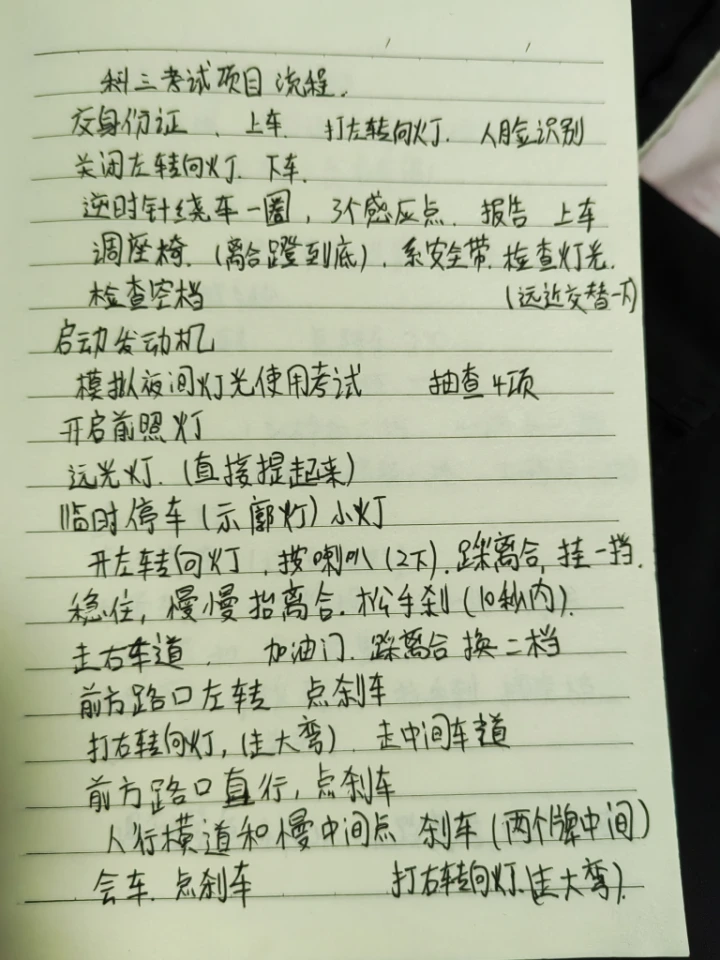 科三考试项目流程.
交身份证、上车. 打左转向灯. 人脸识别
关闭左转向灯. 下车.
逆时针绕车一圈,3个感应点. 报告 上车
调座椅.(离合蹬到底). 系安全带. 检查灯光.
检查空档 (远近交替一下)
启动发动机
模拟夜间灯光使用考试 抽查4项
开启前照灯
远光灯.(直接提起来)
临时停车(示廓灯)小灯
开左转向灯.按喇叭(2下).踩离合,挂一挡.
稳住,慢慢抬离合.松手刹(10秒内).
走右车道. 加油门.踩离合 换二档
前方路口左转 点刹车
打右转向灯,(走大弯). 走中间车道
前方路口直行,点刹车
人行横道和慢中间点 刹车(两个牌中间)
会车. 点刹车 打右转向灯.(走大弯).